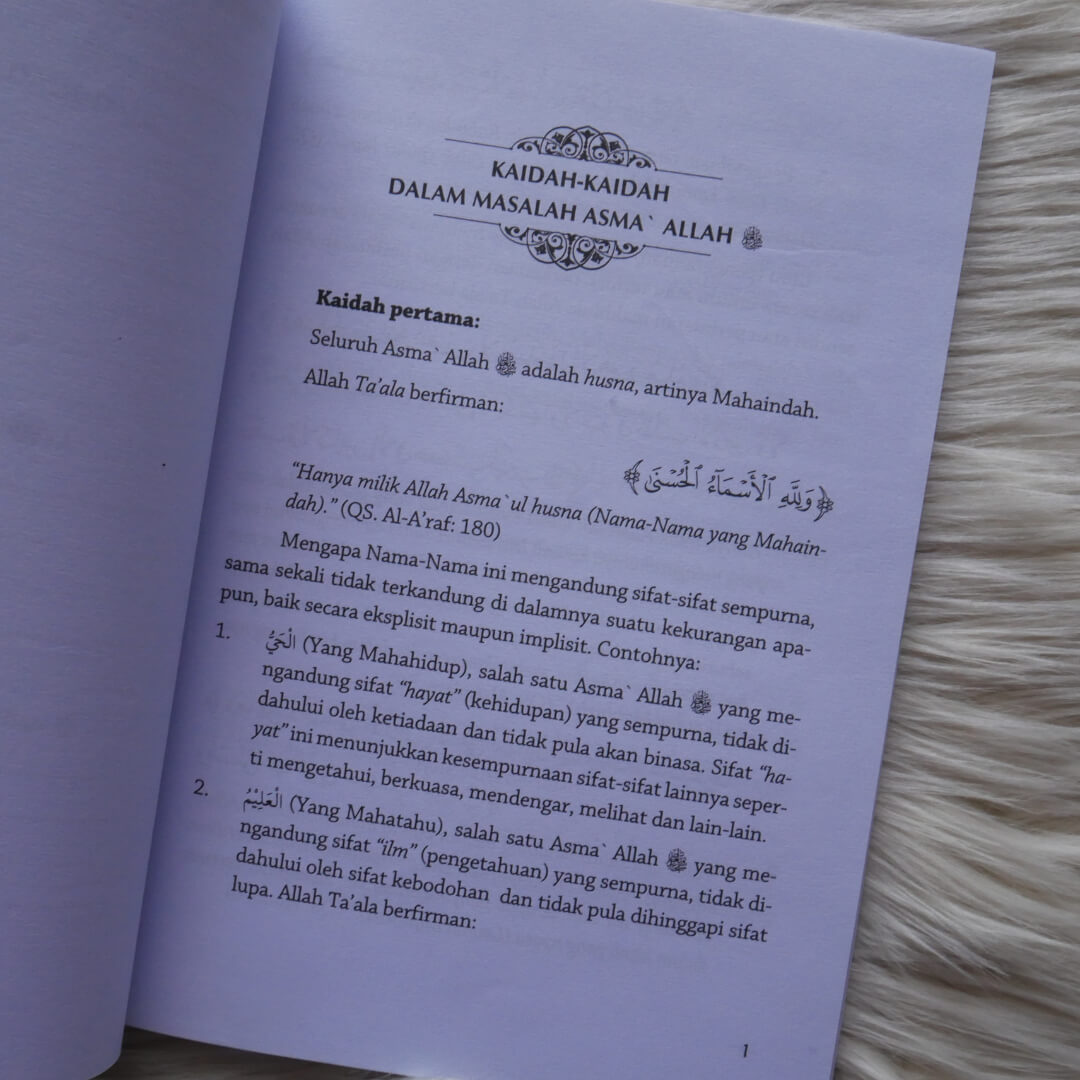 KAIDAH-KAIDAH
DALAM MASALAH ASMA` ALLAH
Kaidah pertama:
Seluruh Asma` Allah adalah husna, artinya Mahaindah.
Allah Ta’ala berfirman:
﴿وَلِلَّهِ ٱلْأَسْمَآءُ ٱلْحُسْنَىٰ﴾
“Hanya milik Allah Asma`ul husna (Nama-Nama yang Mahain-
dah).” (QS. Al-A’raf: 180)
Mengapa Nama-Nama ini mengandung sifat-sifat sempurna,
sama sekali tidak terkandung di dalamnya suatu kekurangan apa-
pun, baik secara eksplisit maupun implisit. Contohnya:
1. الْحَيُّ (Yang Mahahidup), salah satu Asma` Allah yang me-
ngandung sifat “hayat” (kehidupan) yang sempurna, tidak di-
dahului oleh ketiadaan dan tidak pula akan binasa. Sifat “ha-
yat” ini menunjukkan kesempurnaan sifat-sifat lainnya seper-
ti mengetahui, berkuasa, mendengar, melihat dan lain-lain.
2. الْعَلِيْمُ (Yang Mahatahu), salah satu Asma` Allah yang me-
ngandung sifat “ilm” (pengetahuan) yang sempurna, tidak di-
dahului oleh sifat kebodohan dan tidak pula dihinggapi sifat
lupa. Allah Ta’ala berfirman:
1